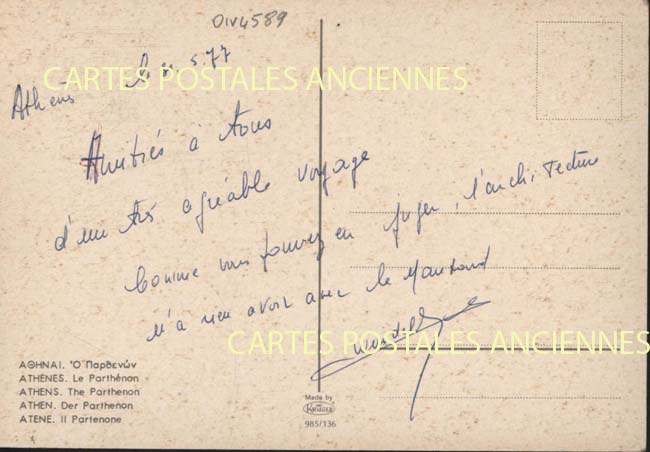 DIV4589
Athens le 5.77
CARTES POSTALES ANCIENNES
Amitiés à tous
d'un très agréable voyage
Comme vous pouvez en juger, l'architecture
n'a rien avoir avec le
CARTES POSTALES ANCIENNES
ΑΘΗΝΑΙ. Ὁ Παρθενών
ATHÈNES. Le Parthénon
ATHENS. The Parthenon
ATHEN. Der Parthenon
ATENE. Il Partenone
Made by
KRÜGER
985/136